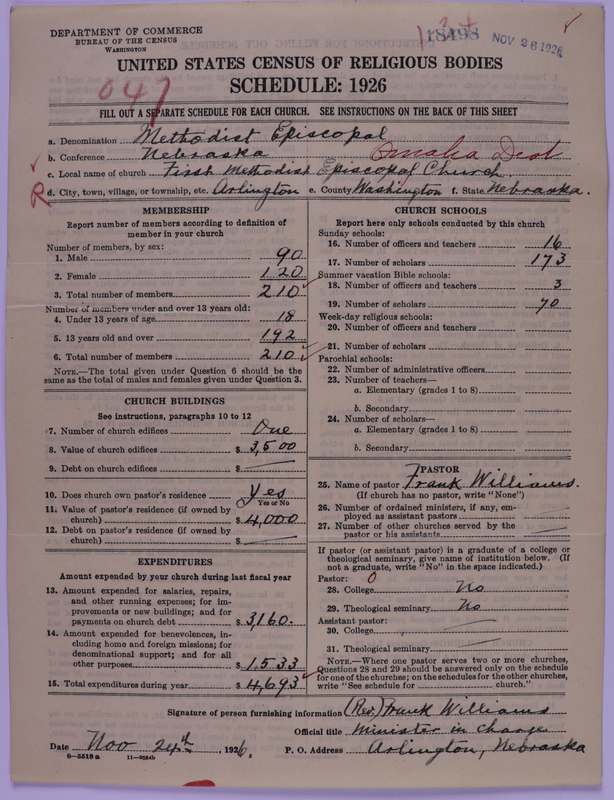 DEPARTMENT OF COMMERCE
BUREAU OF THE CENSUS
WASHINGTON
18498
NOV 26 1926
UNITED STATES CENSUS OF RELIGIOUS BODIES
SCHEDULE: 1926
047
FILL OUT A SEPARATE SCHEDULE FOR EACH CHURCH. SEE INSTRUCTIONS ON THE BACK OF THIS SHEET
a. Denomination Methodist Episcopal
b. Conference Nebraska Omaha Dist
c. Local name of church First Methodist Episcopal Church.
R d. City, town, village, or township, etc. Arlington e. County Washington f. State Nebraska.
MEMBERSHIP
Report number of members according to definition of
member in your church
Number of members, by sex:
1. Male 90
2. Female 120
3. Total number of members 210
Number of members under and over 13 years old:
4. Under 13 years of age 18
5. 13 years old and over 192
6. Total number of members 210
NOTE.—The total given under Question 6 should be
same as the total of males and females given under Question 3.
CHURCH BUILDINGS
See instructions, paragraphs 10 to 12
7. Number of church edifices One
8. Value of church edifices $ 3,500
9. Debt on church edifices $
10. Does church own pastor's residence yes
Yes or No
11. Value of pastor's residence (if owned by
church) $ 4,000
12. Debt on pastor's residence (if owned by
church) $
EXPENDITURES
Amount expended by your church during last fiscal year
13. Amount expended for salaries, repairs,
and other running expenses; for im-
provements or new buildings; and for
payments on church debt $ 3,160.
14. Amount expended for benevolences, in-
cluding home and foreign missions; for
denominational support; and for all
other purposes $ 1,533
15. Total expenditures during year $ 4,693
CHURCH SCHOOLS
Report here only schools conducted by this church
Sunday schools:
16. Number of officers and teachers 16
17. Number of scholars 173
Summer vacation Bible schools:
18. Number of officers and teachers 3
19. Number of scholars 70
Week-day religious schools:
20. Number of officers and teachers
21. Number of scholars
Parochial schools:
22. Number of administrative officers
23. Number of teachers—
a. Elementary (grades 1 to 8)
b. Secondary
24. Number of scholars—
a. Elementary (grades 1 to 8)
b. Secondary
PASTOR
25. Name of pastor Frank Williams.
(If church has no pastor, write "None")
26. Number of ordained ministers, if any, em-
ployed as assistant pastors
27. Number of other churches served by the
pastor or his assistants
If pastor (or assistant pastor) is a graduate of a college or
theological seminary, give name of institution below. (If
not a graduate, write "No" in the space indicated.)
Pastor: 0
28. College No
29. Theological seminary No
Assistant pastor:
30. College
31. Theological seminary
NOTE.—Where one pastor serves two or more churches,
Questions 28 and 29 should be answered only on the schedule
for one of the churches; on the schedules for the other churches,
write "See schedule for church."
Signature of person furnishing information (Rev.) Frank Williams
Official title Minister in Charge
Date Nov 24th, 1926. P. O. Address Arlington, Nebraska
8-5518 a 11-9034b